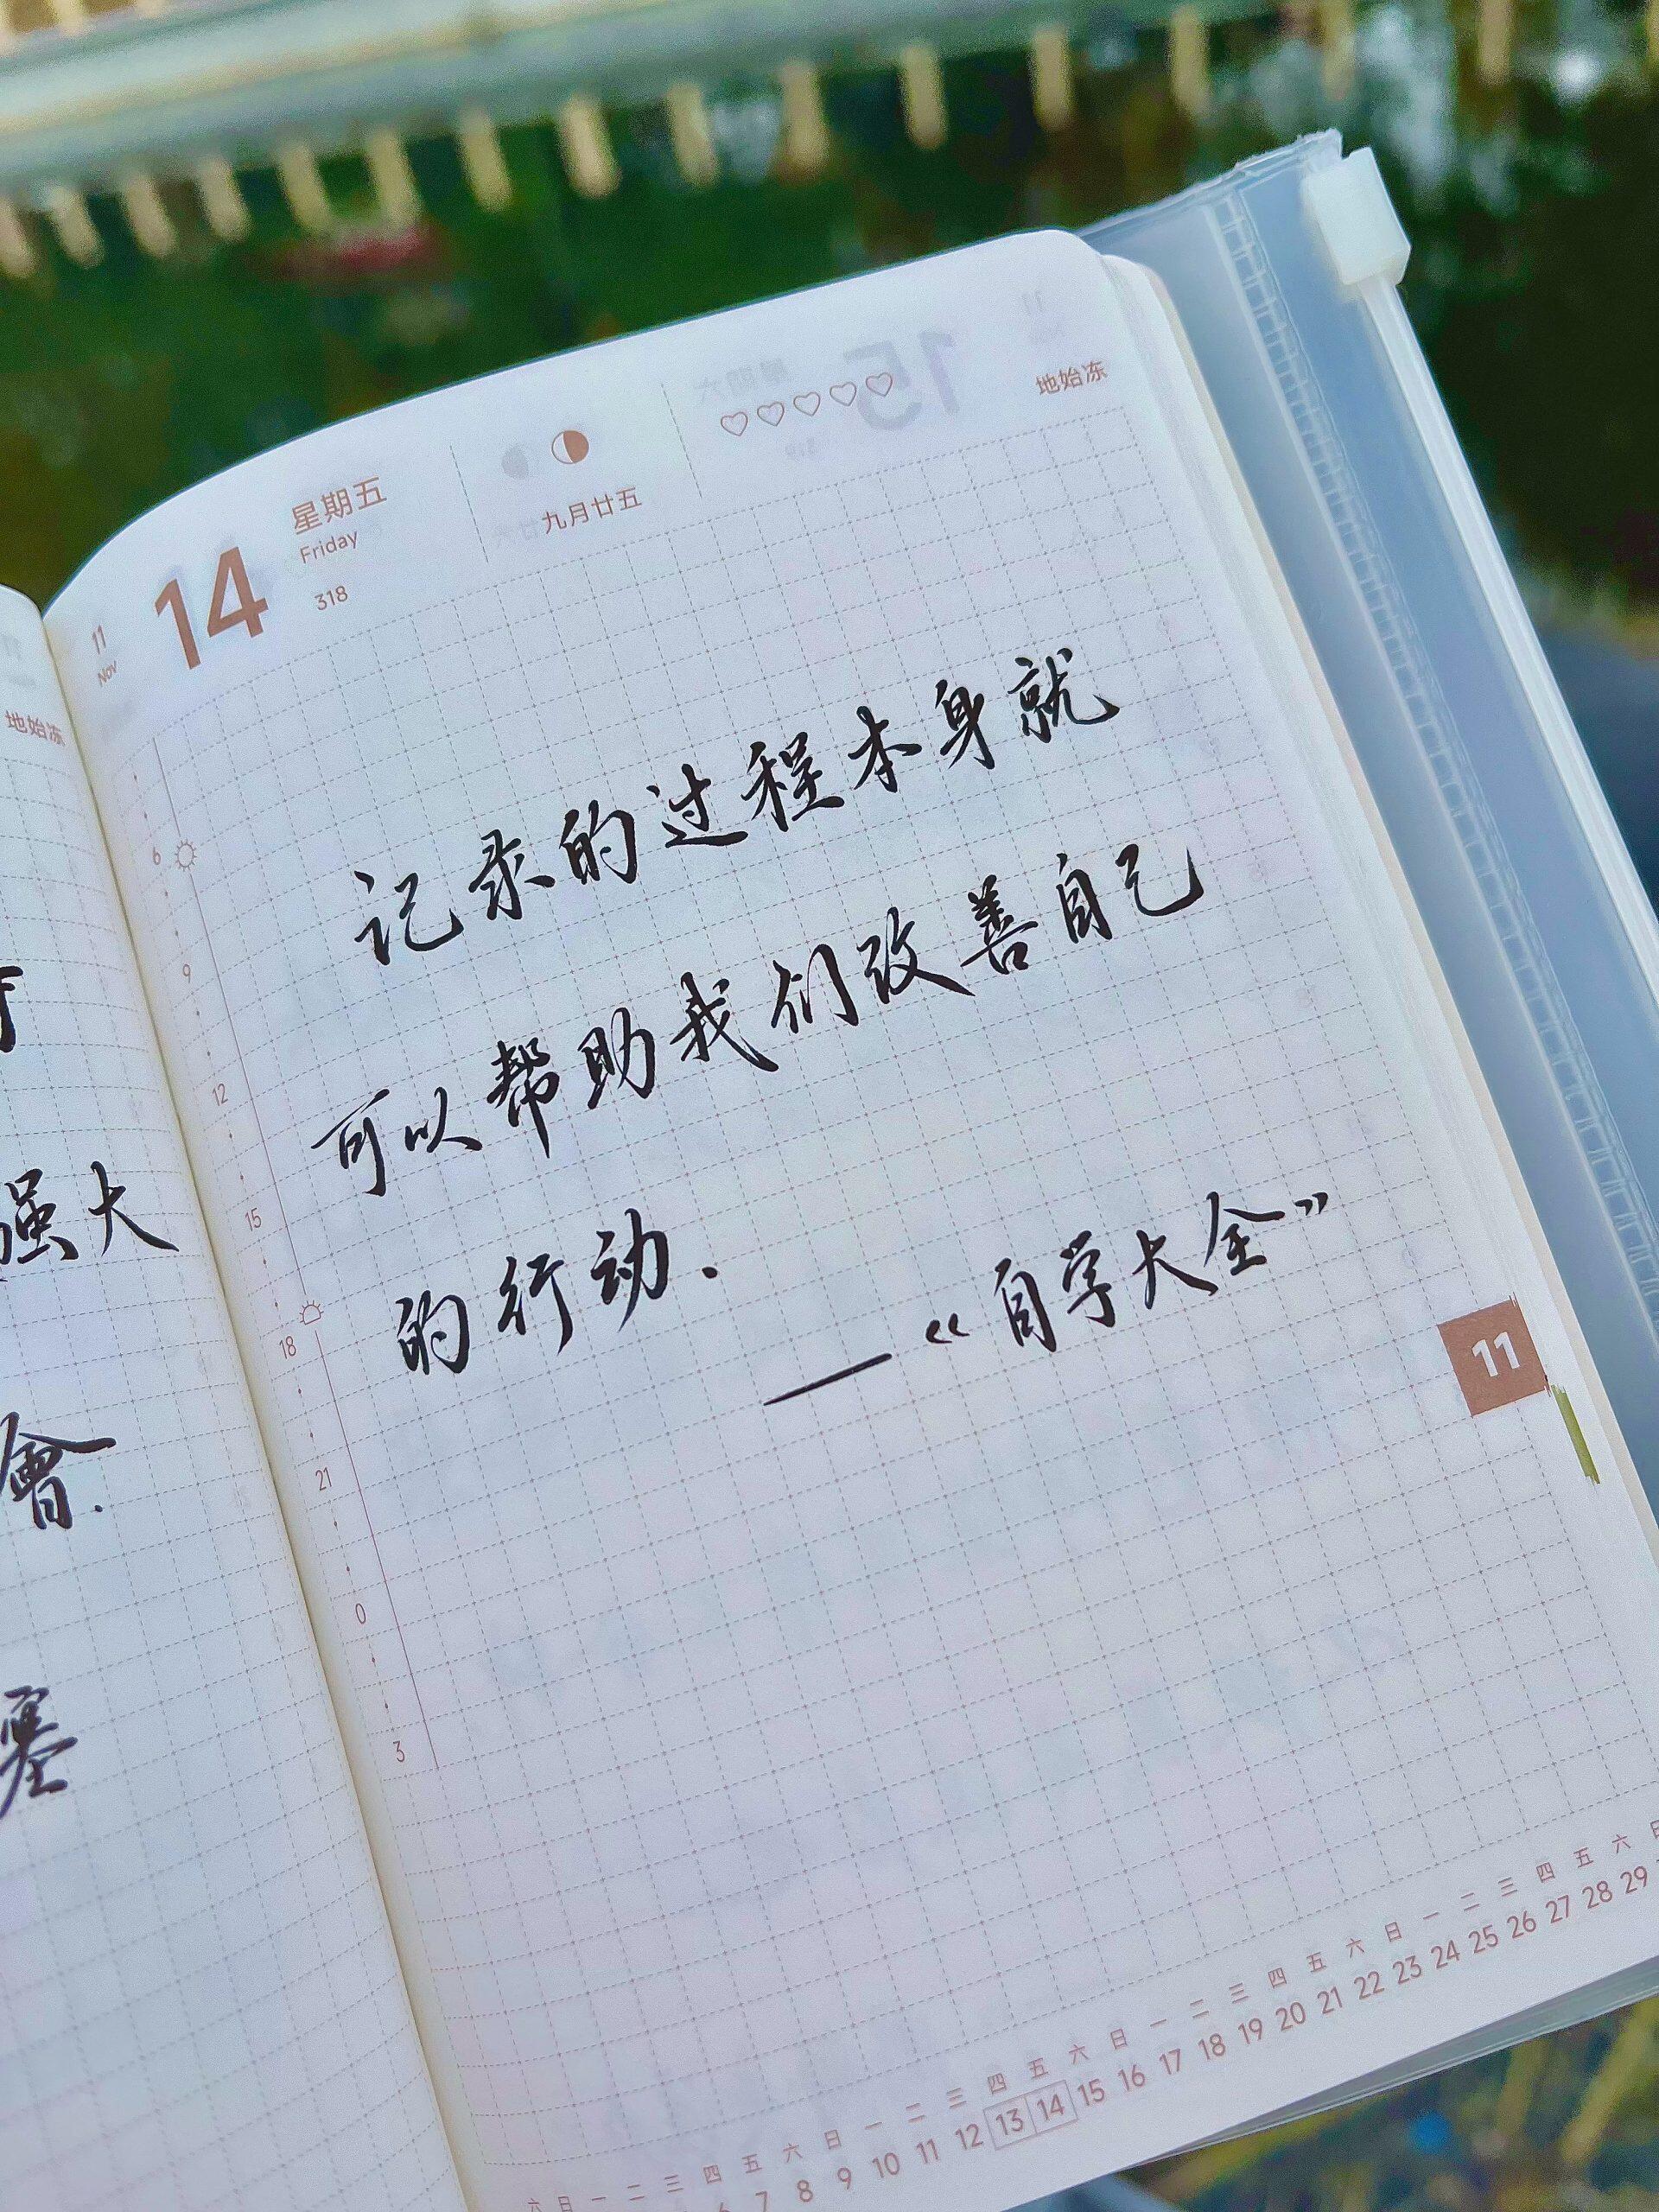 地始冻
强大
會.
11
Nov
14
星期五
Friday
318
九月廿五
地始冻
记录的过程本身就
可以帮助我们改善自己
的行动.
——《自学大全》
6
9
12
15
18
21
0
3
11
六 日 一 二 三 四 五 六 日 一 二 三 四 五 六 日 一 二 三 四 五 六 日 一 二 三 四 五 六 日
6 7 8 9 10 11 12 13 14 15 16 17 18 19 20 21 22 23 24 25 26 27 28 29